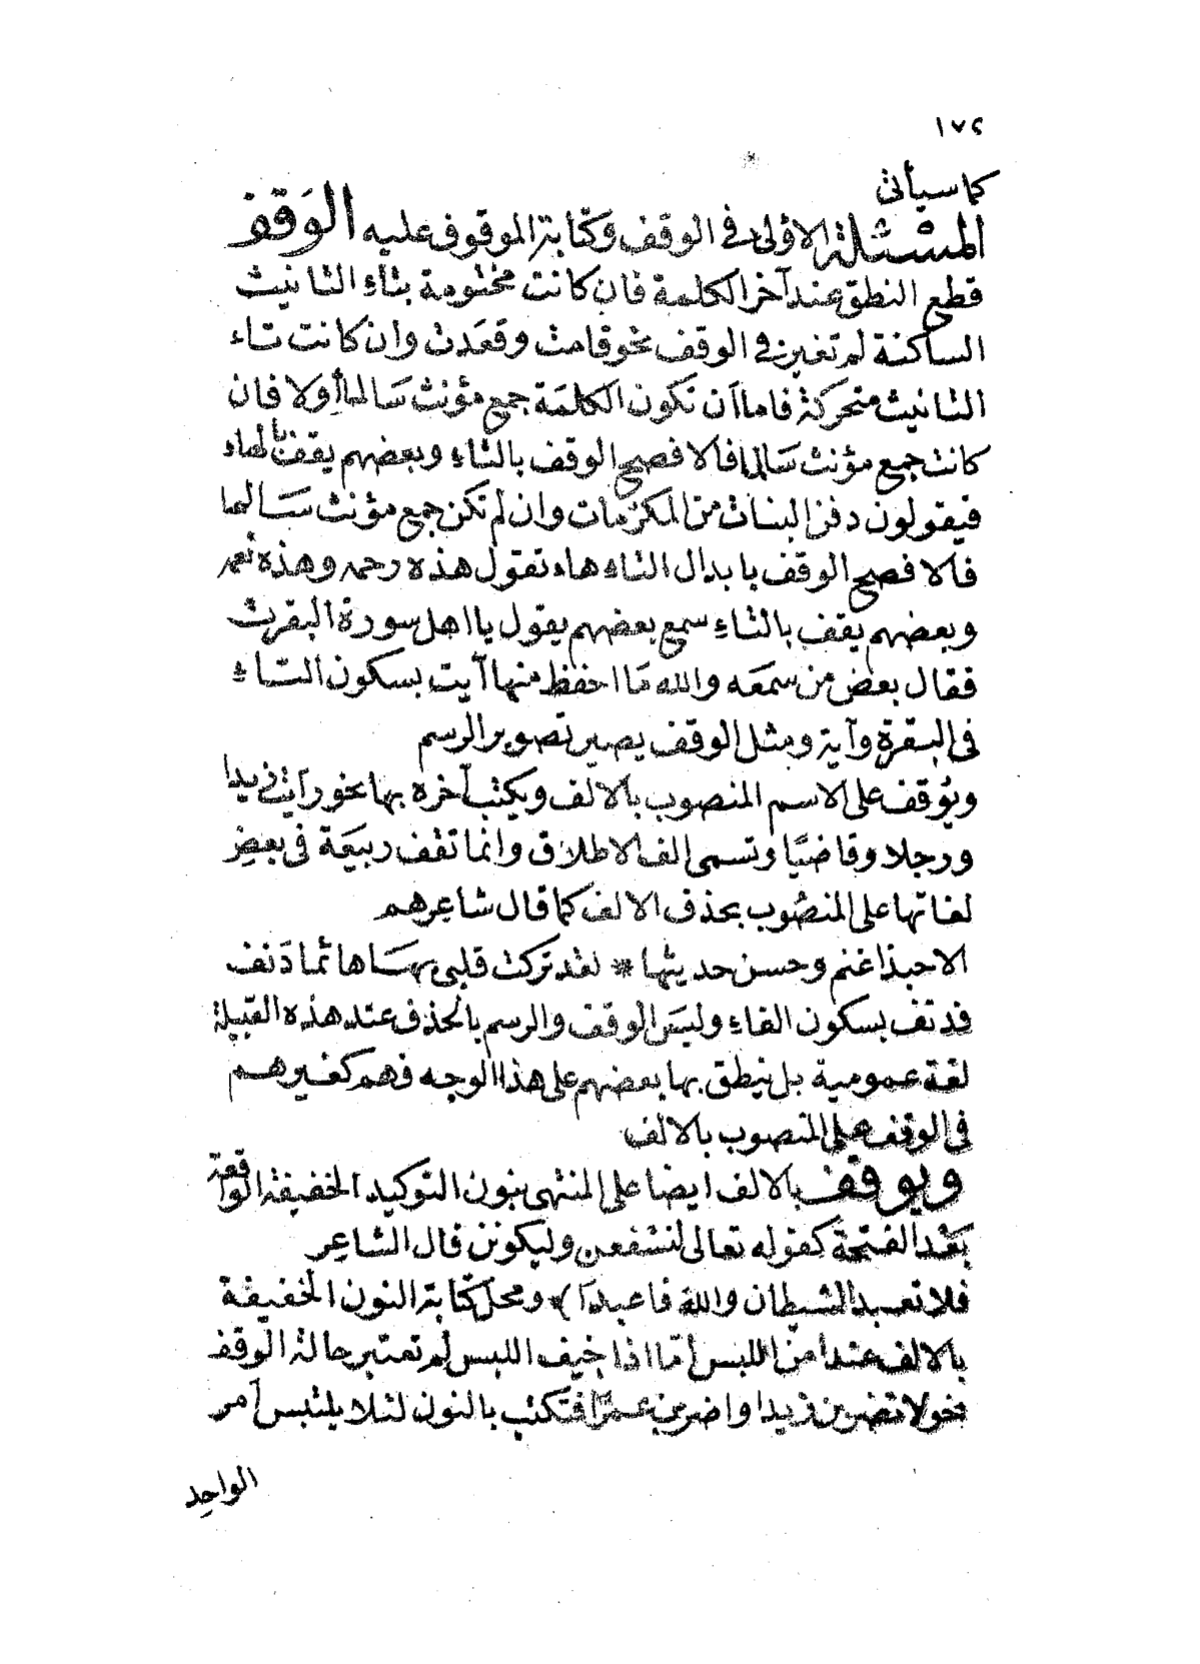 ١٧٤
كما سيأتى
المسئلة الاولى فى الوقف وكتابة الموقوف عليه الوقف
قطع النطق عند آخر الكلمة فان كانت مختومة بتاء التانيث
الساكنة لم تغير فى الوقف نحو قامت وقعدت وان كانت تاء
التانيث متحركة فاما أن تكون الكلمة جمع مؤنث سالما أو لا فان
كانت جمع مؤنث سالما فالافصح الوقف بالتاء وبعضهم يقف بالهاء
فيقولون دفن البناه من المكرمات وان لم تكن جمع مؤنث سالما
فالافصح الوقف بابدال التاء هاء تقول هذه رحمه وهذه نعمه
وبعضهم يقف بالتاء سمع بعضهم يقول يا اهل سورة البقرت
فقال بعض من سمعه والله ما احفظ منها آيت بسكون التاء
فى البقرة وآية ومثل الوقف يصير تصوير الرسم
ويوقف على الاسم المنصوب بالالف ويكتب آخره بها نحو رأيت زيدا
ورجلا وقاضيًا وتسمى الف الاطلاق وانما تقف ربيعة فى بعض
لغاتها على المنصوب بحذف الالف كما قال شاعرهم
الاحبذا غنم وحسن حديثها * لقد تركت قلبى بها هائما دنف
فدنف بسكون الفاء وليس الوقف والرسم بالحذف عند هذه القبيلة
لغة عمومية بل ينطق بها بعضهم على هذا الوجه فهم كغيرهم
فى الوقف على المنصوب بالالف
ويوقف بالالف ايضا على المنتهى بنون التوكيد الخفيفة الواقعة
بعد الفتحة كقوله تعالى لنسفعن وليكونن قال الشاعر
فلا تعبد الشيطان والله فاعبدا) ومحل كتابة النون الخفيفة
بالالف عند أمن اللبس أما اذا خيف اللبس لم تعتبر حالة الوقف
نحو لا تضربن زيدا واضربن عمرا فتكتب بالنون لئلا يلتبس أمر
الواحد